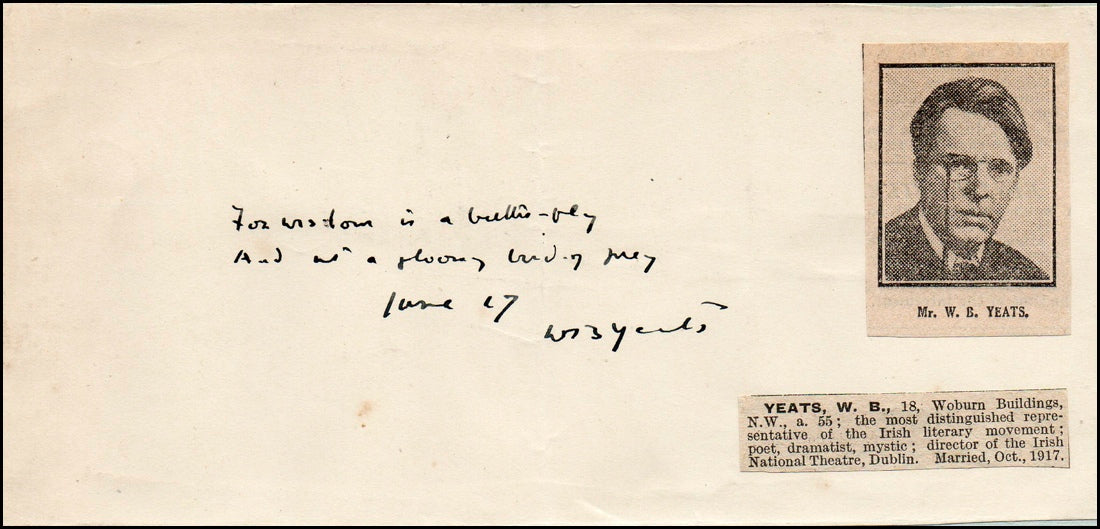 For wisdom is a buttis-fly
And not a gloomy bird of prey
June 17
WB Yeats
Mr. W. B. YEATS.
YEATS, W. B., 18, Woburn Buildings,
N.W., a. 55; the most distinguished repre-
sentative of the Irish literary movement;
poet, dramatist, mystic; director of the Irish
National Theatre, Dublin. Married, Oct., 1917.